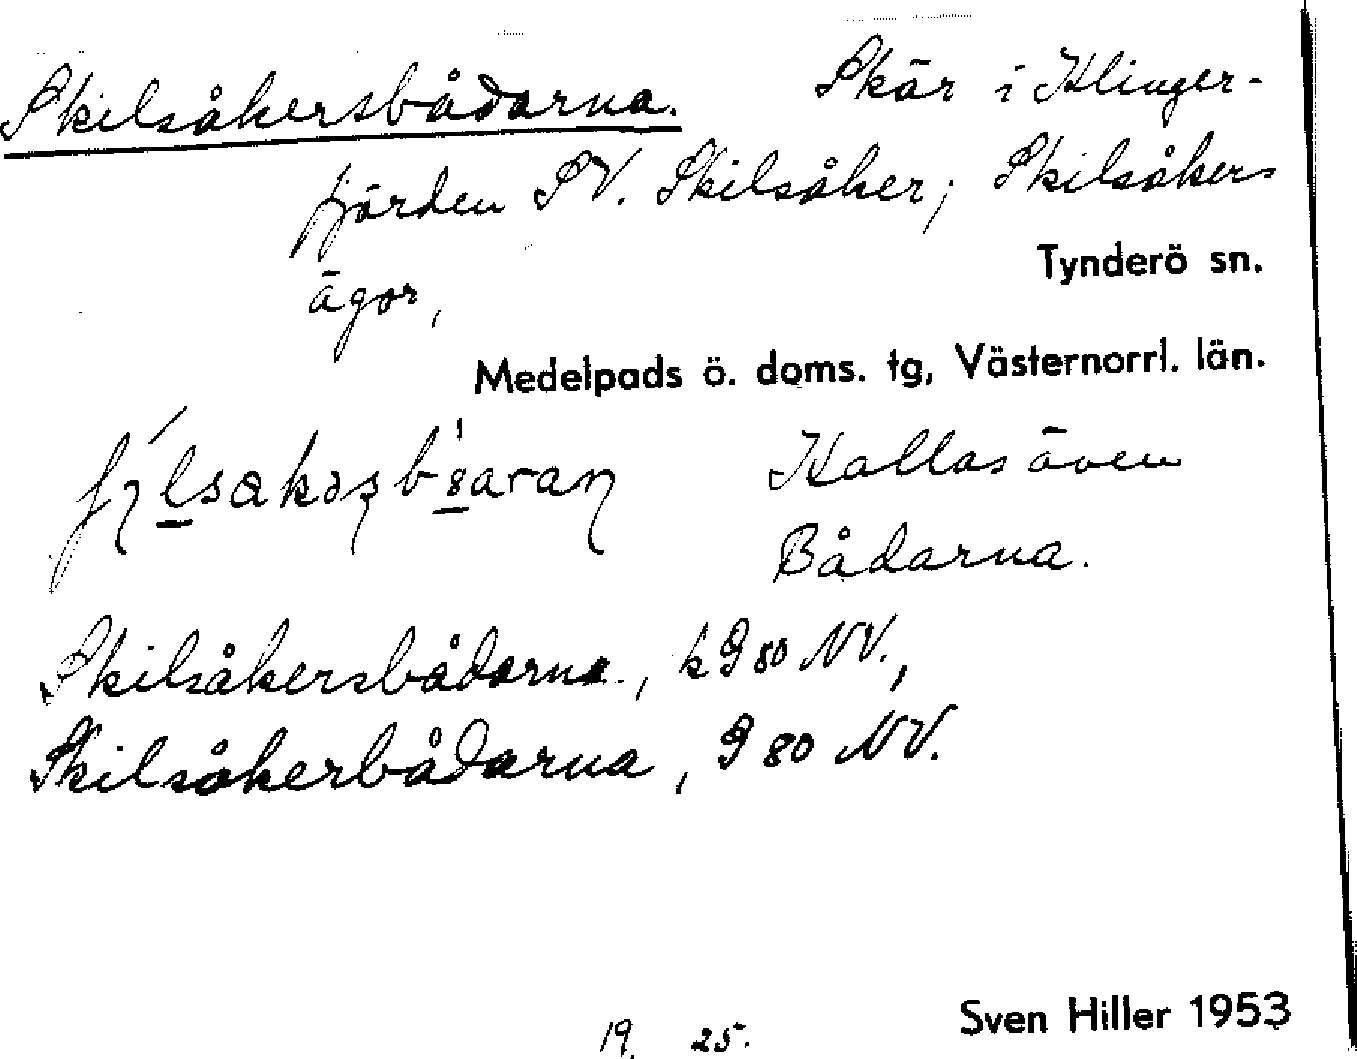 Skilsåkersbådarna. Skär i Klinger-
fjärden SV. Skilsåker; Skilsåkers
ägor,
Tynderö sn.
Medelpads ö. doms. tg, Västernorrl. län.
Kallas även
Bådarna.
Skilsåkersbådarna, k 9 80 NV.,
Skilsåkerbådarna, 9 80 NV.
19. 25.
Sven Hiller 1953